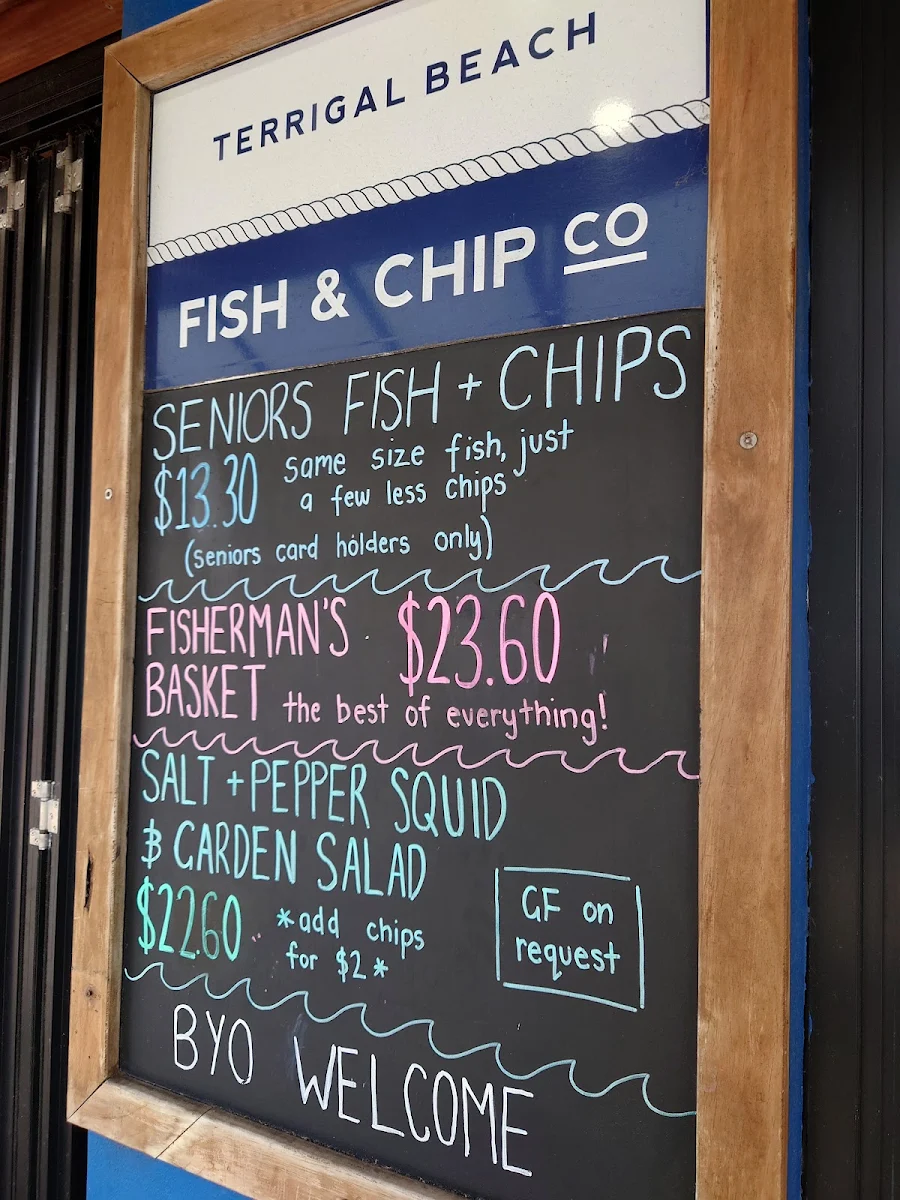 TERRIGAL BEACH
FISH & CHIP CO
SENIORS FISH + CHIPS
$13.30 same size fish, just
a few less chips
(seniors card holders only)
FISHERMAN'S $23.60
BASKET the best of everything!
SALT + PEPPER SQUID
& GARDEN SALAD
$22.60 *add chips
for $2*
GF on
request
BYO WELCOME